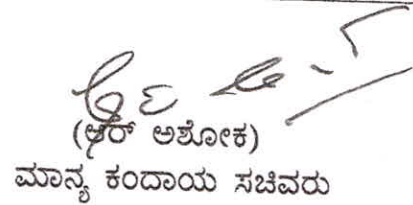 (ಆರ್ ಅಶೋಕ)
ಮಾನ್ಯ ಕಂದಾಯ ಸಚಿವರು